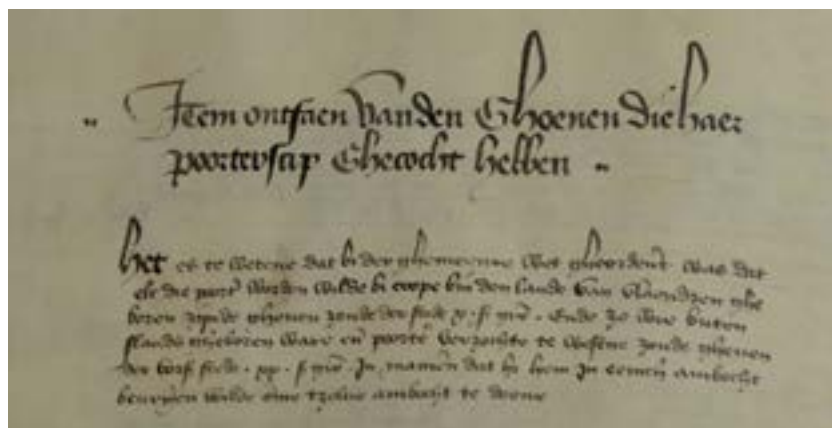 Item ontfaen van den Ghoenen die haer
poorterscip Ghecocht hebben
het es te wetene dat bi der ghemeenre wet gheordent was dat
elc die port worden wilde bi coope bin den lande van vlaendren ghe
boren zynde gheven zoude der stede x s gro. Ende zo wie buten
vlaendr gheboren ware en port verzochte te wesene zoude gheven
der vors stede xx s gro. In manien dat hi hem in eenen ambocht
bevryen wilde ome tzelve ambocht te doene